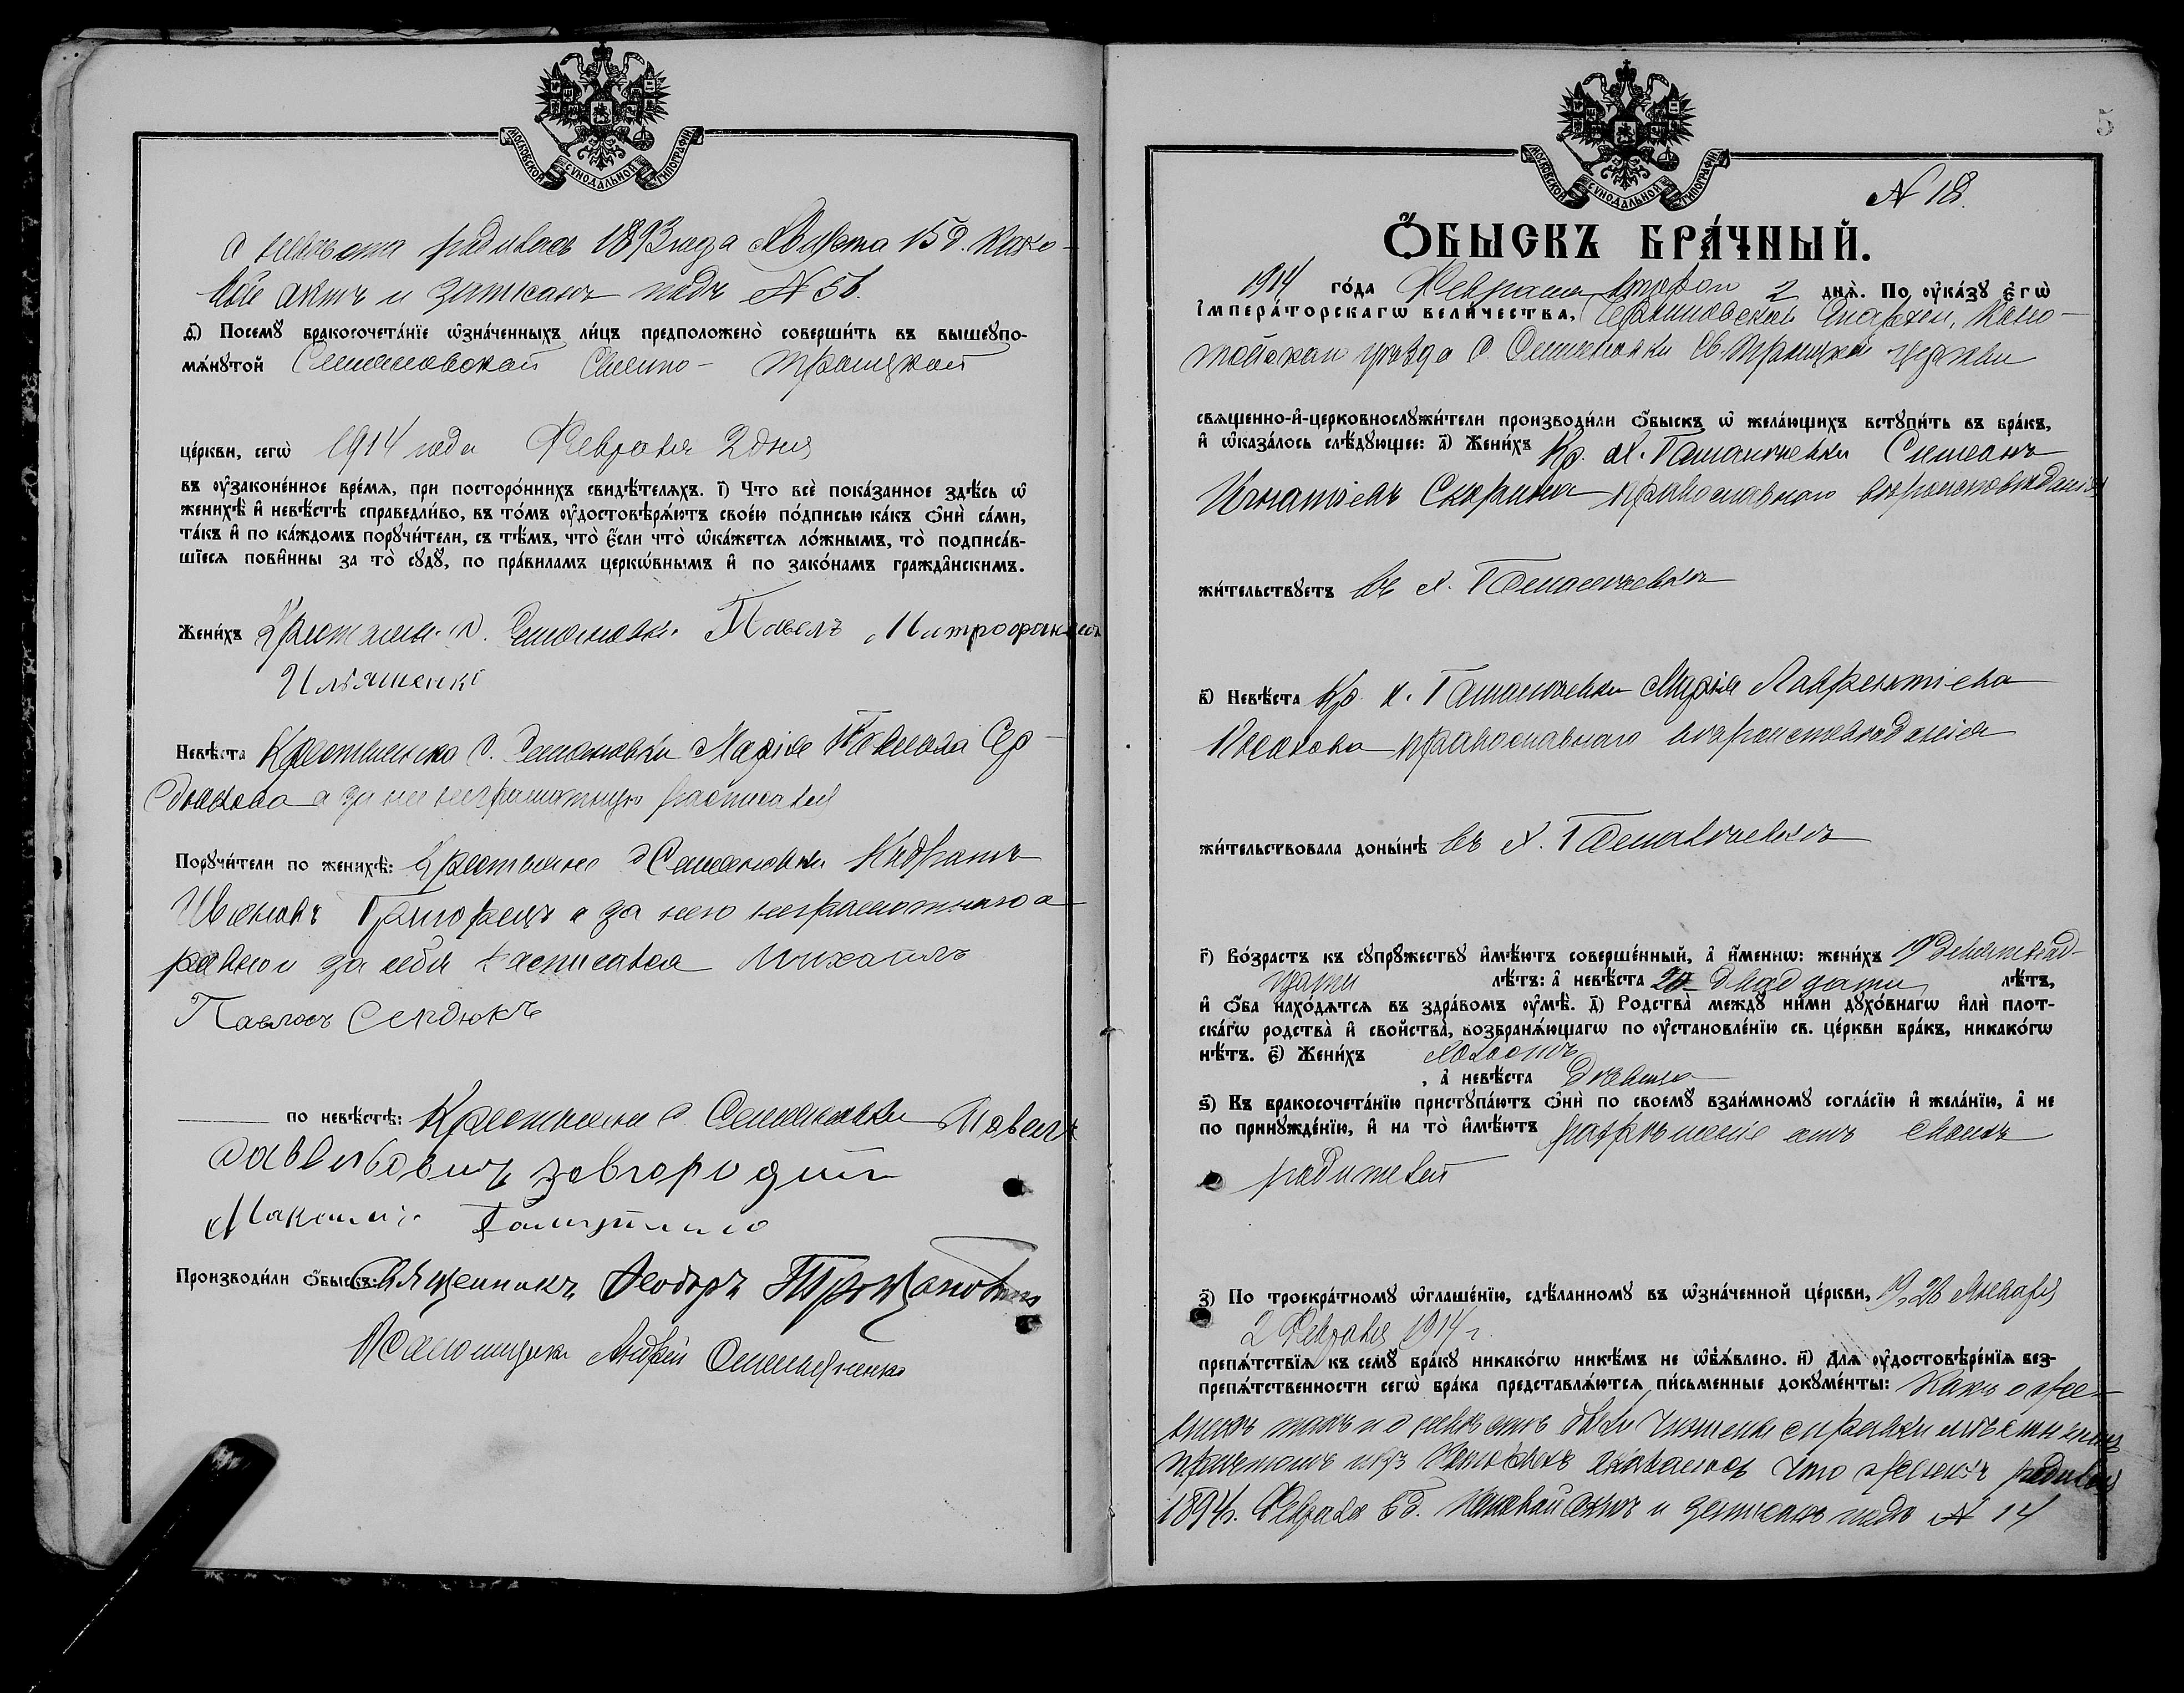 МОСКОВСКОЙ СѴНОДАЛЬНОЙ ТИПОГРАФІИ
о невѣста родилась 1893 года Августа 15 д. како-
вой актъ и записанъ подъ № 56.
д҃) Посемꙋ бракосочета́нїе ѡ҆зна́ченныхъ ли́цъ предположено̀ соверши́ть въ вышеꙋпо-
мѧ́нꙋтой Семеновской Свято- Троицкой
це́ркви, сегѡ̀ 1914 года Февраля 2 дня
въ ᲂу҆законе́нное вре́мѧ, при посторо́ннихъ свидѣ́телѧхъ. і҃) Что̀ всѐ пока́занное здѣ́сь ѡ҆
женихѣ̀ и҆ невѣ́стѣ справедли́во, въ то́мъ ᲂу҆достовѣрѧ́ютъ свое́ю по́дписью ка́къ ѻ҆нѝ са́ми,
та́къ и҆ по ка́ждомъ порꙋчи́тели, съ тѣ́мъ, что̀ є҆́сли что̀ ѡ҆ка́жетсѧ ло́жнымъ, то̀ подписа́в-
шїесѧ пови́нны за то̀ сꙋдꙋ̀, по пра́виламъ церкѡ́внымъ и҆ по зако́намъ гражда̑нскимъ.
Жени́хъ Крестьян. с. Семеновки Павелъ Митрофановъ
Ильяшенко
Невѣ́ста Крестьянка с. Семеновки Марія Павлова Сер-
дюкова а за нее неграмотную росписался
Порꙋчи́тели по женихѣ̀: Крестьяне с Семеновки Кидратъ
Ивановъ Григорецъ а за него неграмотнаго а
равно и за себя Расписался Михаилъ
Павловъ Сердюкъ
по невѣ́стѣ: Крестьяне с. Семеновки Павелъ
Савельевичъ завгородній
Максимъ
Производи́ли ѻ҆́быскъ: Священникъ Ѳеодоръ
Псаломщикъ Андрей
5
МОСКОВСКОЙ СѴНОДАЛЬНОЙ ТИПОГРАФІИ
№ 18.
Ѻ҆́БЫСКЪ БРА́ЧНЫЙ.
1914 го́да Февраля второго 2 днѧ̀. По ᲂу҆ка́зꙋ є҆гѡ̀
і҆мпера́торскагѡ вели́чества, Черниговской Епархіи, Коно-
топскаго уѣзда с. Семеновки Св. Троицкой церкви
свѧще́нно-и҆-церковнослꙋжи́тели производи́ли ѻ҆́быскъ ѡ҆ жела́ющихъ встꙋпи́ть въ бра́къ,
и҆ ѡ҆каза́лось слѣ́дꙋющее: а҃) Жени́хъ Кр. х. Симеонъ
Игнатіевъ Скорина православнаго вѣроисповѣданія
жи́тельствꙋетъ въ х.
в҃) Невѣ́ста Кр. х. Марія Лаврентіева
православнаго вѣроисповѣданія
жи́тельствовала доны́нѣ въ х.
г҃) Во́зрастъ къ сꙋпрꙋ́жествꙋ и҆мѣ́ютъ соверше́нный, а҆ и҆́меннѡ: жени́хъ 19 девятнад-
цати лѣ́тъ: а҆ невѣ́ста 20 двадцати лѣ́тъ,
и҆ ѻ҆́ба нахо́дѧтсѧ въ здра́вомъ ᲂу҆мѣ̀. д҃) Родства̀ междꙋ̀ ни́ми дꙋхо́внагѡ и҆лѝ плот-
ска́гѡ родства̀ и҆ сво́йства, возбранѧ́ющагѡ по ᲂу҆становле́нїю св. це́ркви бра́къ, никако́гѡ
нѣ́тъ. є҃) Жени́хъ холостъ
, а҆ невѣ́ста дѣвица
ѕ҃) Къ бракосочета́нїю пристꙋпа́ютъ ѻ҆нѝ по своемꙋ̀ взаи́мномꙋ согла́сїю и҆ жела́нїю, а҆ не
по принꙋжде́нїю, и҆ на то̀ и҆мѣ́ютъ разрѣшеніе отъ своихъ
родителей
з҃) По троекра́тномꙋ ѡ҆глаше́нїю, сдѣ́ланномꙋ въ ѡ҆зна́ченной це́ркви, 19, 26 Января
2 Февраля 1914 г.
препѧ́тствїѧ къ семꙋ̀ бра́кꙋ никако́гѡ никѣ́мъ не ѡ҆б̾ѧ́влено. и҃) Длѧ ᲂу҆достовѣре́нїѧ без-
препѧ́тственности сегѡ̀ бра́ка представлѧ́ютсѧ пи́сьменные докꙋме́нты: Какъ о же-
нихѣ такъ и о невѣстѣ были справки мѣстнымъ
причтомъ изъ которыхъ оказалось что женихъ родился
1894 г. Февраля д. каковой актъ и записанъ подъ № 14